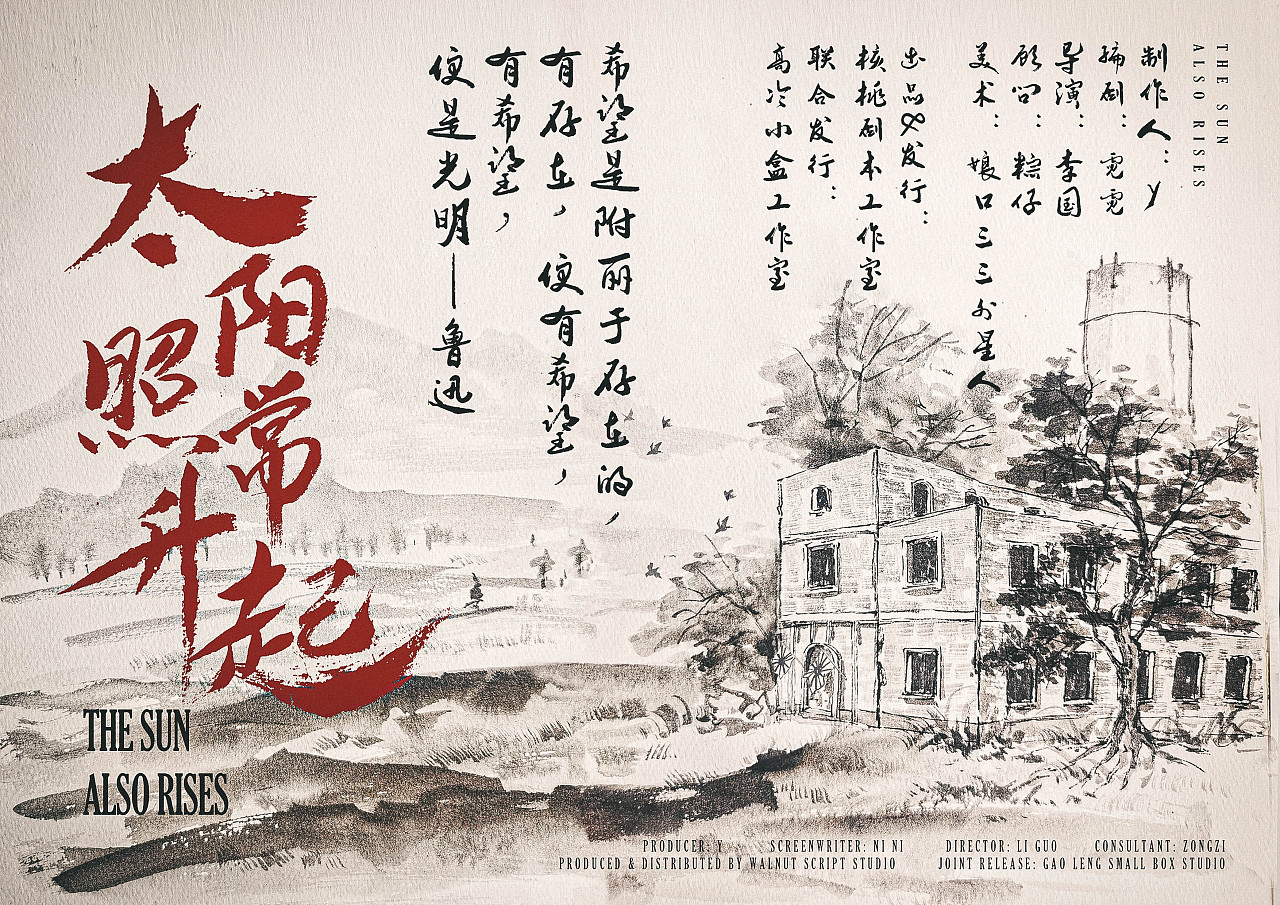 太阳照常升起
THE SUN
ALSO RISES
希望是附丽于存在的，
有存在，便有希望，
有希望，
便是光明——鲁迅
THE SUN
ALSO RISES
制作人：Y
编剧：霓霓
导演：李国
顾问：粽仔
美术：娘口三三外星人
出品&发行：
核桃剧本工作室
联合发行：
高冷小盒工作室
PRODUCER: Y SCREENWRITER: NI NI DIRECTOR: LI GUO CONSULTANT: ZONGZI
PRODUCED & DISTRIBUTED BY WALNUT SCRIPT STUDIO JOINT RELEASE: GAO LENG SMALL BOX STUDIO